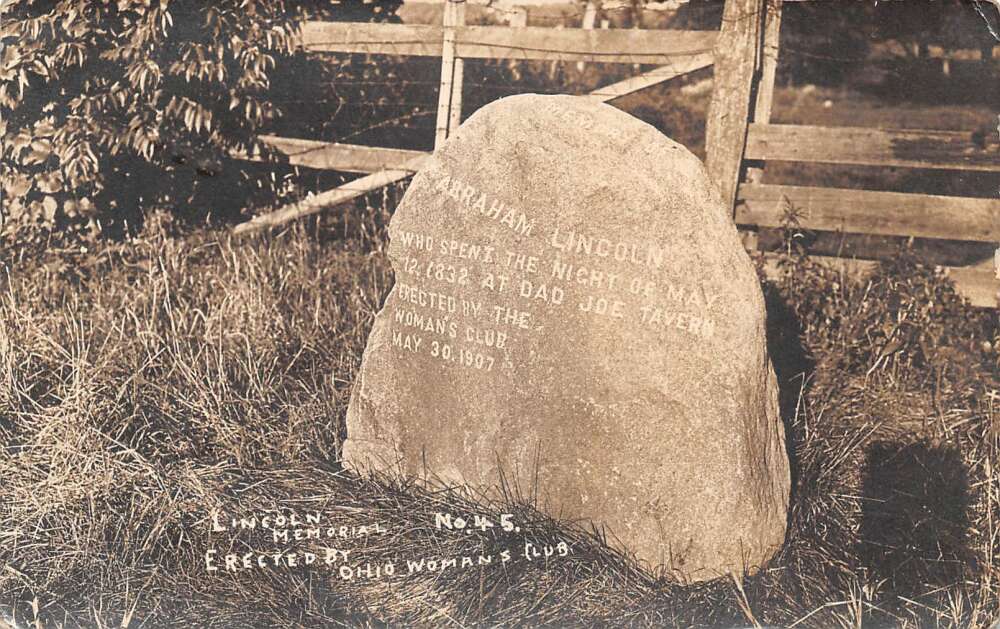 ABRAHAM LINCOLN
WHO SPENT THE NIGHT OF MAY
12, 1832 AT DAD JOE TAVERN
ERECTED BY THE
WOMAN'S CLUB
MAY 30, 1907
LINCOLN
MEMORIAL
No. 45.
ERECTED BY
OHIO WOMAN'S CLUB